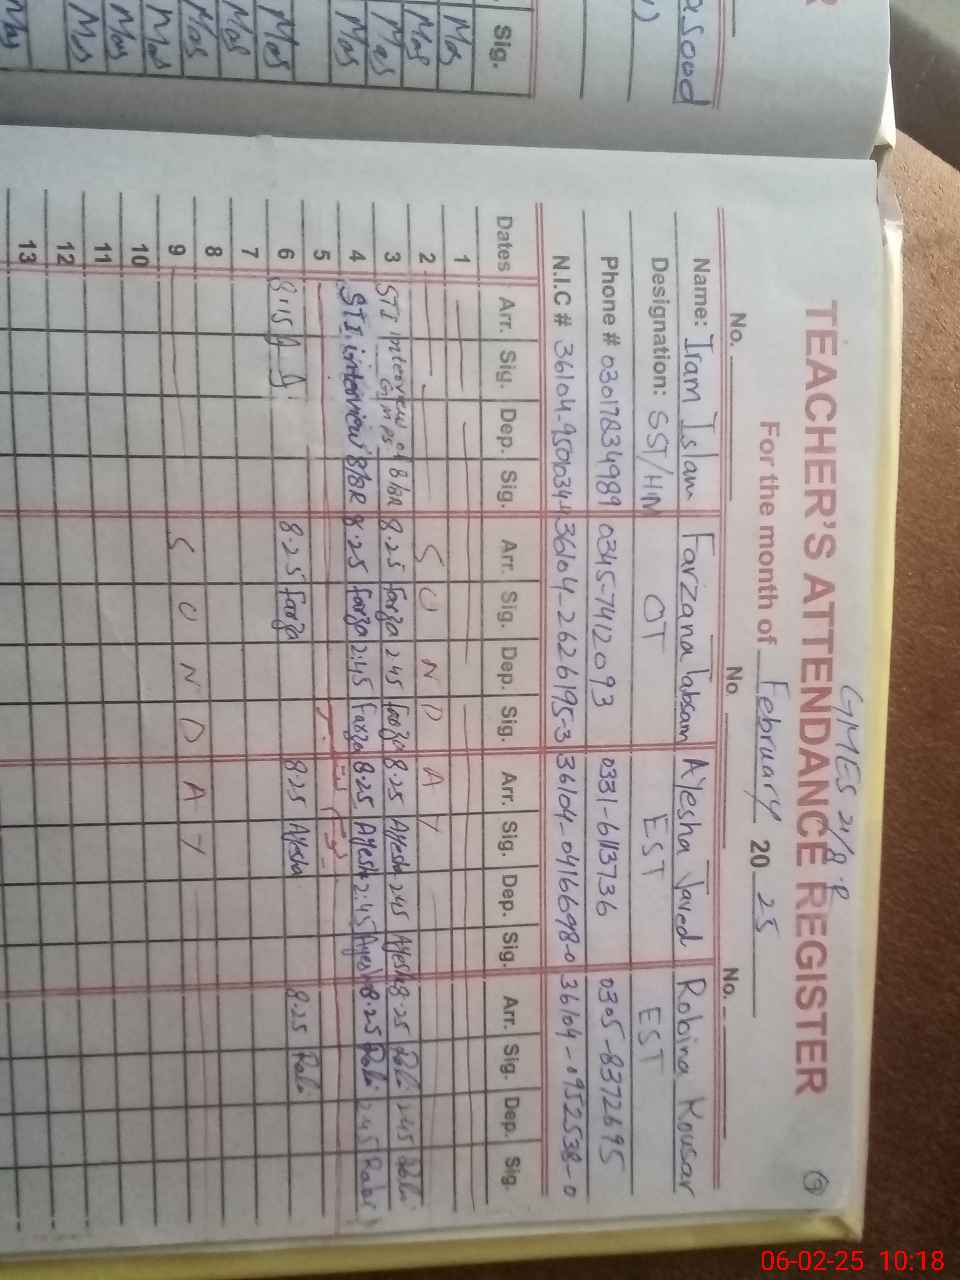 GMES 21/8.R
TEACHER'S ATTENDANCE REGISTER
For the month of February 2025
No. No. No.
Name: Iram Islam Farzana Tabsam Ayesha Javed Robina Kousar
Designation: SST/HM OT EST EST
Phone # 03017834989 0345-7412093 0331-6113736 0305-8372695
N.I.C # 36104-9500344 36104-2626195-3 36104-0416698-0 36104-0952538-0
Dates Arr. Sig. Dep. Sig. Arr. Sig. Dep. Sig. Arr. Sig. Dep. Sig. Arr. Sig. Dep. Sig.
1
2 S U N D A Y
3 STI interview of B/BR 8.25 Farza 2.45 Farza 8.25 Ayesha 2.45 Ayesha 8.25 Robi 2.45 Robi
4 STI interview B/BR 8.25 Farza 2:45 Farza 8.25 Ayesha 2:45 Ayesha 8.25 Robi 2.45 Robi
5
6 8:15 8.25 Farza 8.25 Ayesha 8.25 Robi
7
8
9 S U N D A Y
10
11
12
13
asood
Sig.
Mas
Mas
Mas
Mas
Mas
Mas
Mas
Mas
Mas
Mas
Mas
06-02-25 10:18